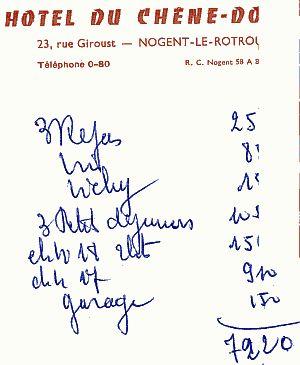 HOTEL DU CHÊNE-DO
23, rue Giroust — NOGENT-LE-ROTROU
Téléphone 0-80 R. C. Nogent 58 A 8
3 Repas 25
Vin 8
Vichy 1
3 Petit déjeuners 105
ch 18 151
ch 17 910
garage 150
7920